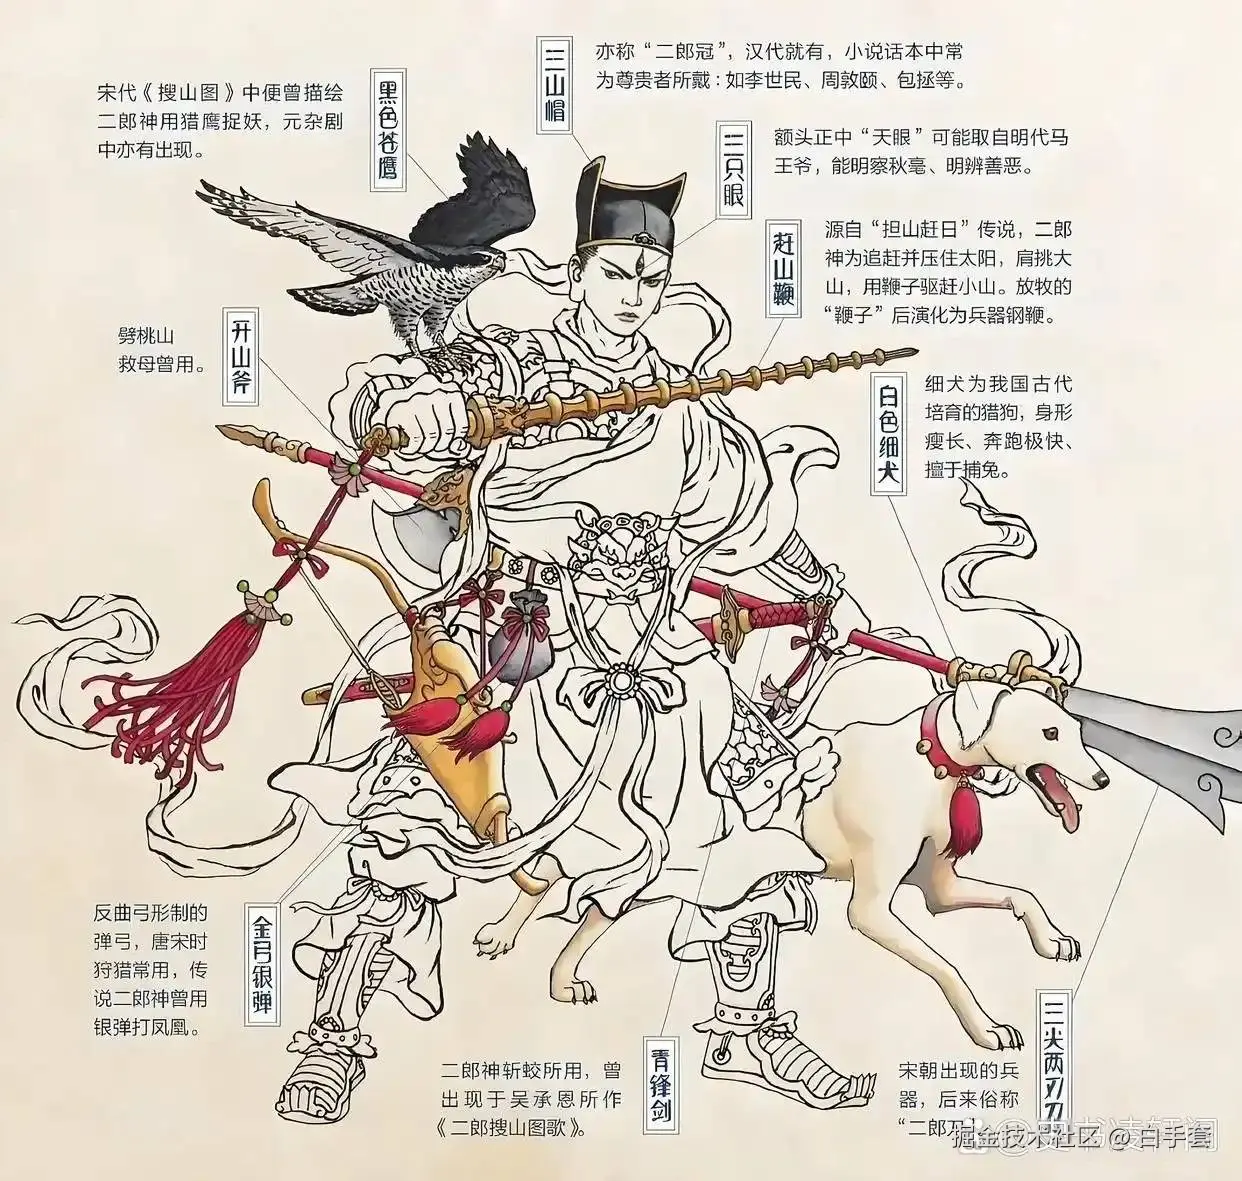 黑色苍鹰
宋代《搜山图》中便曾描绘
二郎神用猎鹰捉妖，元杂剧
中亦有出现。
三山帽
亦称“二郎冠”，汉代就有，小说话本中常
为尊贵者所戴：如李世民、周敦颐、包拯等。
三只眼
额头正中“天眼”可能取自明代马
王爷，能明察秋毫、明辨善恶。
赶山鞭
源自“担山赶日”传说，二郎
神为追赶并压住太阳，肩挑大
山，用鞭子驱赶小山。放牧的
“鞭子”后演化为兵器钢鞭。
开山斧
劈桃山
救母曾用。
白色细犬
细犬为我国古代
培育的猎狗，身形
瘦长、奔跑极快、
擅于捕兔。
金弓银弹
反曲弓形制的
弹弓，唐宋时
狩猎常用，传
说二郎神曾用
银弹打凤凰。
青锋剑
二郎神斩蛟所用，曾
出现于吴承恩所作
《二郎搜山图歌》。
三尖两刃刀
宋朝出现的兵
器，后来俗称
“二郎刀”
掘金技术社区 @ 白手套